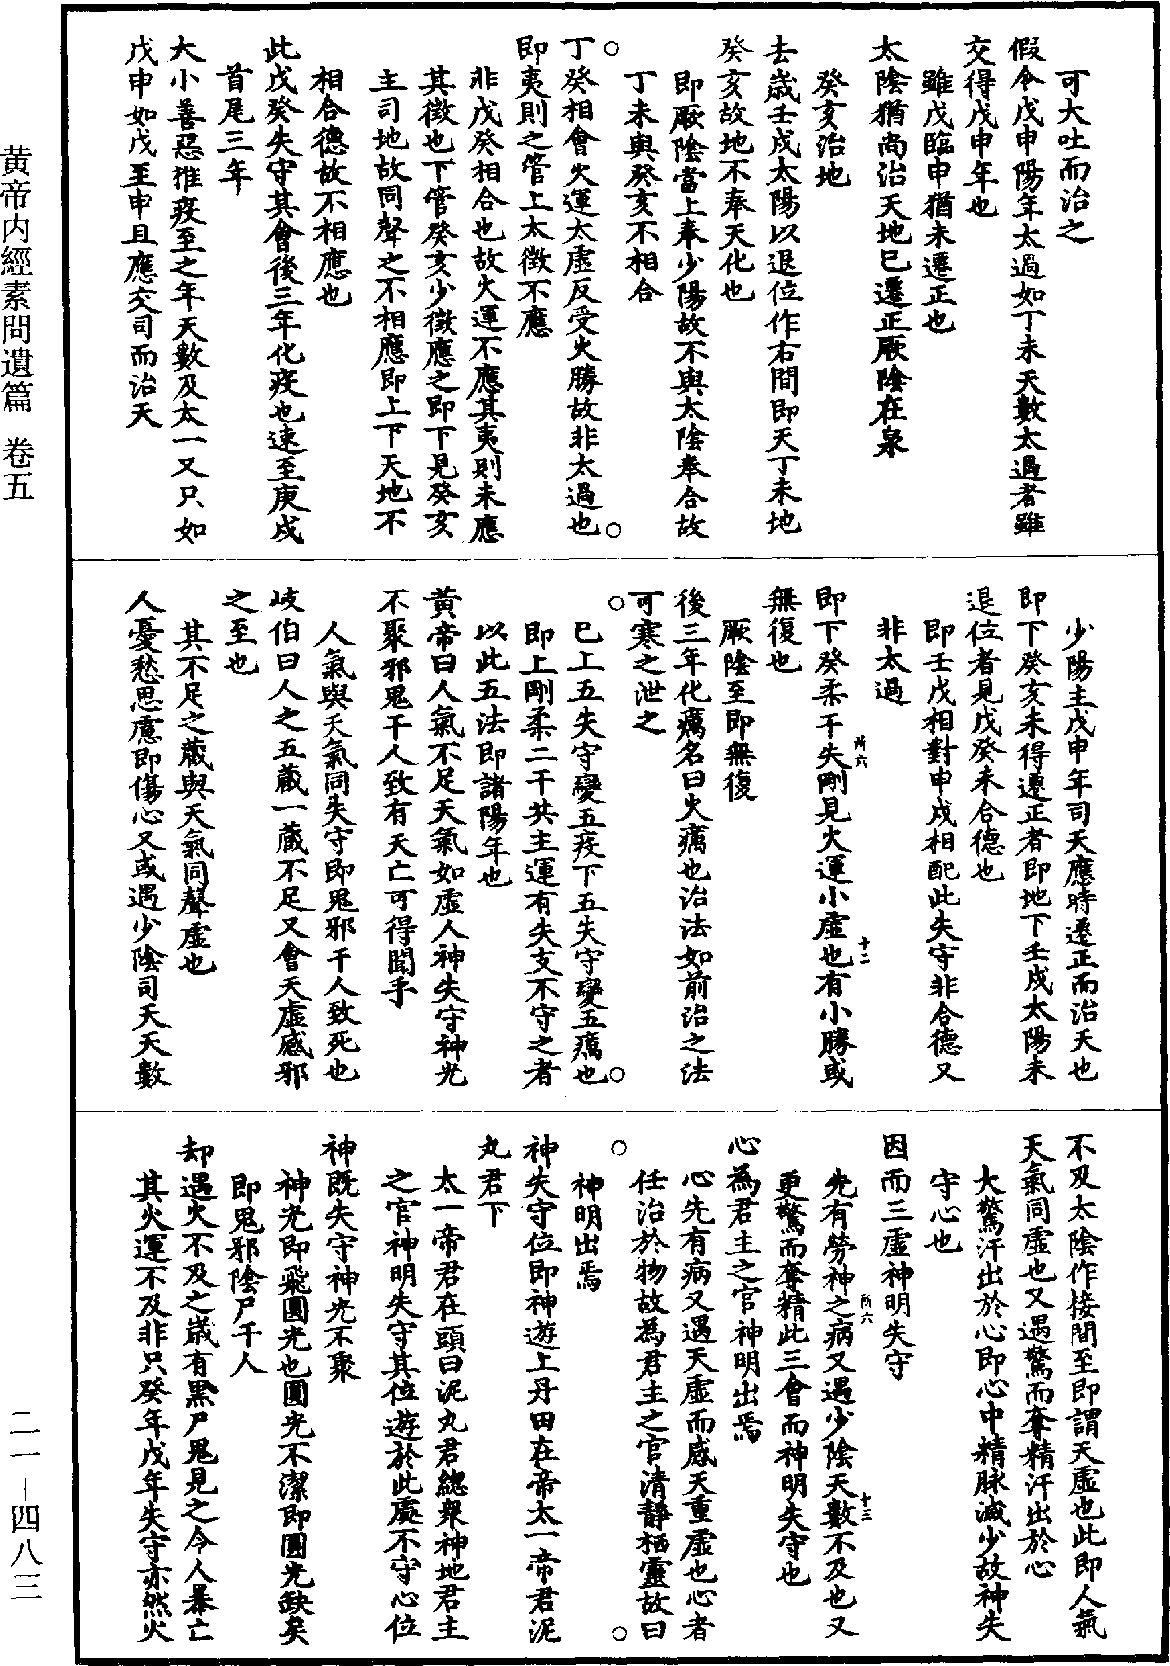 可大吐而治之
假令戊申陽年太過如丁未天數太過者雖
交得戊申年也
雖戊臨申猶未遷正也
太陰猶尚治天地巳遷正厥陰在泉
癸亥治地
去歲壬戌太陽以退位作右間即天丁未地
癸亥故地不奉天化也
即厥陰當上奉少陽故不與太陰奉合故
丁未與癸亥不相合
丁癸相會火運太虛反受火勝故非太過也
即夷則之管上太徵不應
非戊癸相合也故火運不應其夷則未應
其徵也下管癸亥少徵應之即下見癸亥
主司地故同聲之不相應即上下天地不
相合德故不相應也
此戊癸失守其會後三年化疫也速至庚戌
首尾三年
大小善惡推疫至之年天數及太一又只如
戊申如戊至申且應交司而治天
少陽主戊申年司天應時遷正而治天也
即下癸亥未得遷正者即地下壬戌太陽未
退位者見戊癸未合德也
即壬戊相對申戌相配此失守非合德又
非太過
即下癸柔干失剛見火運小虛也有小勝或
無復也
厥陰至即無復
後三年化癘名曰火癘也治法如前治之法
可寒之泄之
巳上五失守變五疫下五失守變五癘也
即上剛柔二干共主運有失支不守之者
以此五法即諸陽年也
黃帝曰人氣不足天氣如虛人神失守神光
不聚邪鬼干人致有夭亡可得聞乎
人氣與天氣同失守即鬼邪干人致死也
岐伯曰人之五藏一藏不足又會天虛感邪
之至也
其不足之藏與天氣同聲虛也
人憂愁思慮即傷心又或遇少陰司天天數
不及太陰作接間至即謂天虛也此即人氣
天氣同虛也又遇驚而奪精汗出於心
大驚汗出於心即心中精脉減少故神失
守心也
因而三虛神明失守
先有勞神之病又遇少陰天數不及也又
更驚而奪精此三會而神明失守也
心為君主之官神明出焉
心先有病又遇天虛而感天重虛也心者
任治於物故為君主之官清靜栖靈故曰
神明出焉
神失守位即神遊上丹田在帝太一帝君泥
丸君下
太一帝君在頭曰泥丸君總衆神地君主
之官神明失守其位遊於此處不守心位
神既失守神光不聚
神光即飛圓光也圓光不潔即圓光缺矣
即鬼邪陰尸干人
却遇火不及之歲有黑尸鬼見之令人暴亡
其火運不及非只癸年戊年失守亦然火
所六
十二
所六
十三
黃帝内經素問遺篇 卷五
二一－四八三